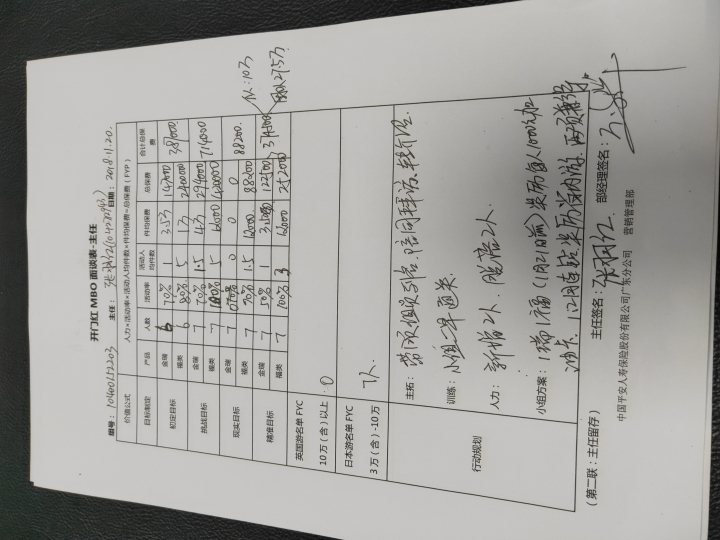 开门红 MBO 面谈表-主任
编号：10400152203 主任： 日期：2018.11.20.
价值公式 人力×活动率×活动人均件数×件均保费=总保费（FYP）
目标制定 产品 人数 活动率 活动人均件数 件均保费 总保费 合计总保费
初定目标 金瑞 6 70% 1 3.5万 147000 387000
福类 6 80% 5 1万 240000
挑战目标 金瑞 7 70% 1.5 4万 294000 714000
福类 7 100% 5 12000 420000
现实目标 金瑞 7 0% 0 0 0 88200.
福类 7 70% 1.5 12000 88200
精准目标 金瑞 7 50% 1 3.5000 122500
福类 7 100% 3 12000 252000
从：10万
英国游名单 FYC
10 万（含）以上 ：0
日本游名单 FYC
3 万（含）-10 万 7人.
行动规划
主拓：陪同拜访、转介绍.
训练：小组二早通关.
人力：新增2人. 脱落2人.
小组方案：1瑞1福（1月21日前）奖励每人1000元加
油卡.
主任签名： 部经理签名：
（第二联：主任留存）
中国平安人寿保险股份有限公司广东分公司 营销管理部